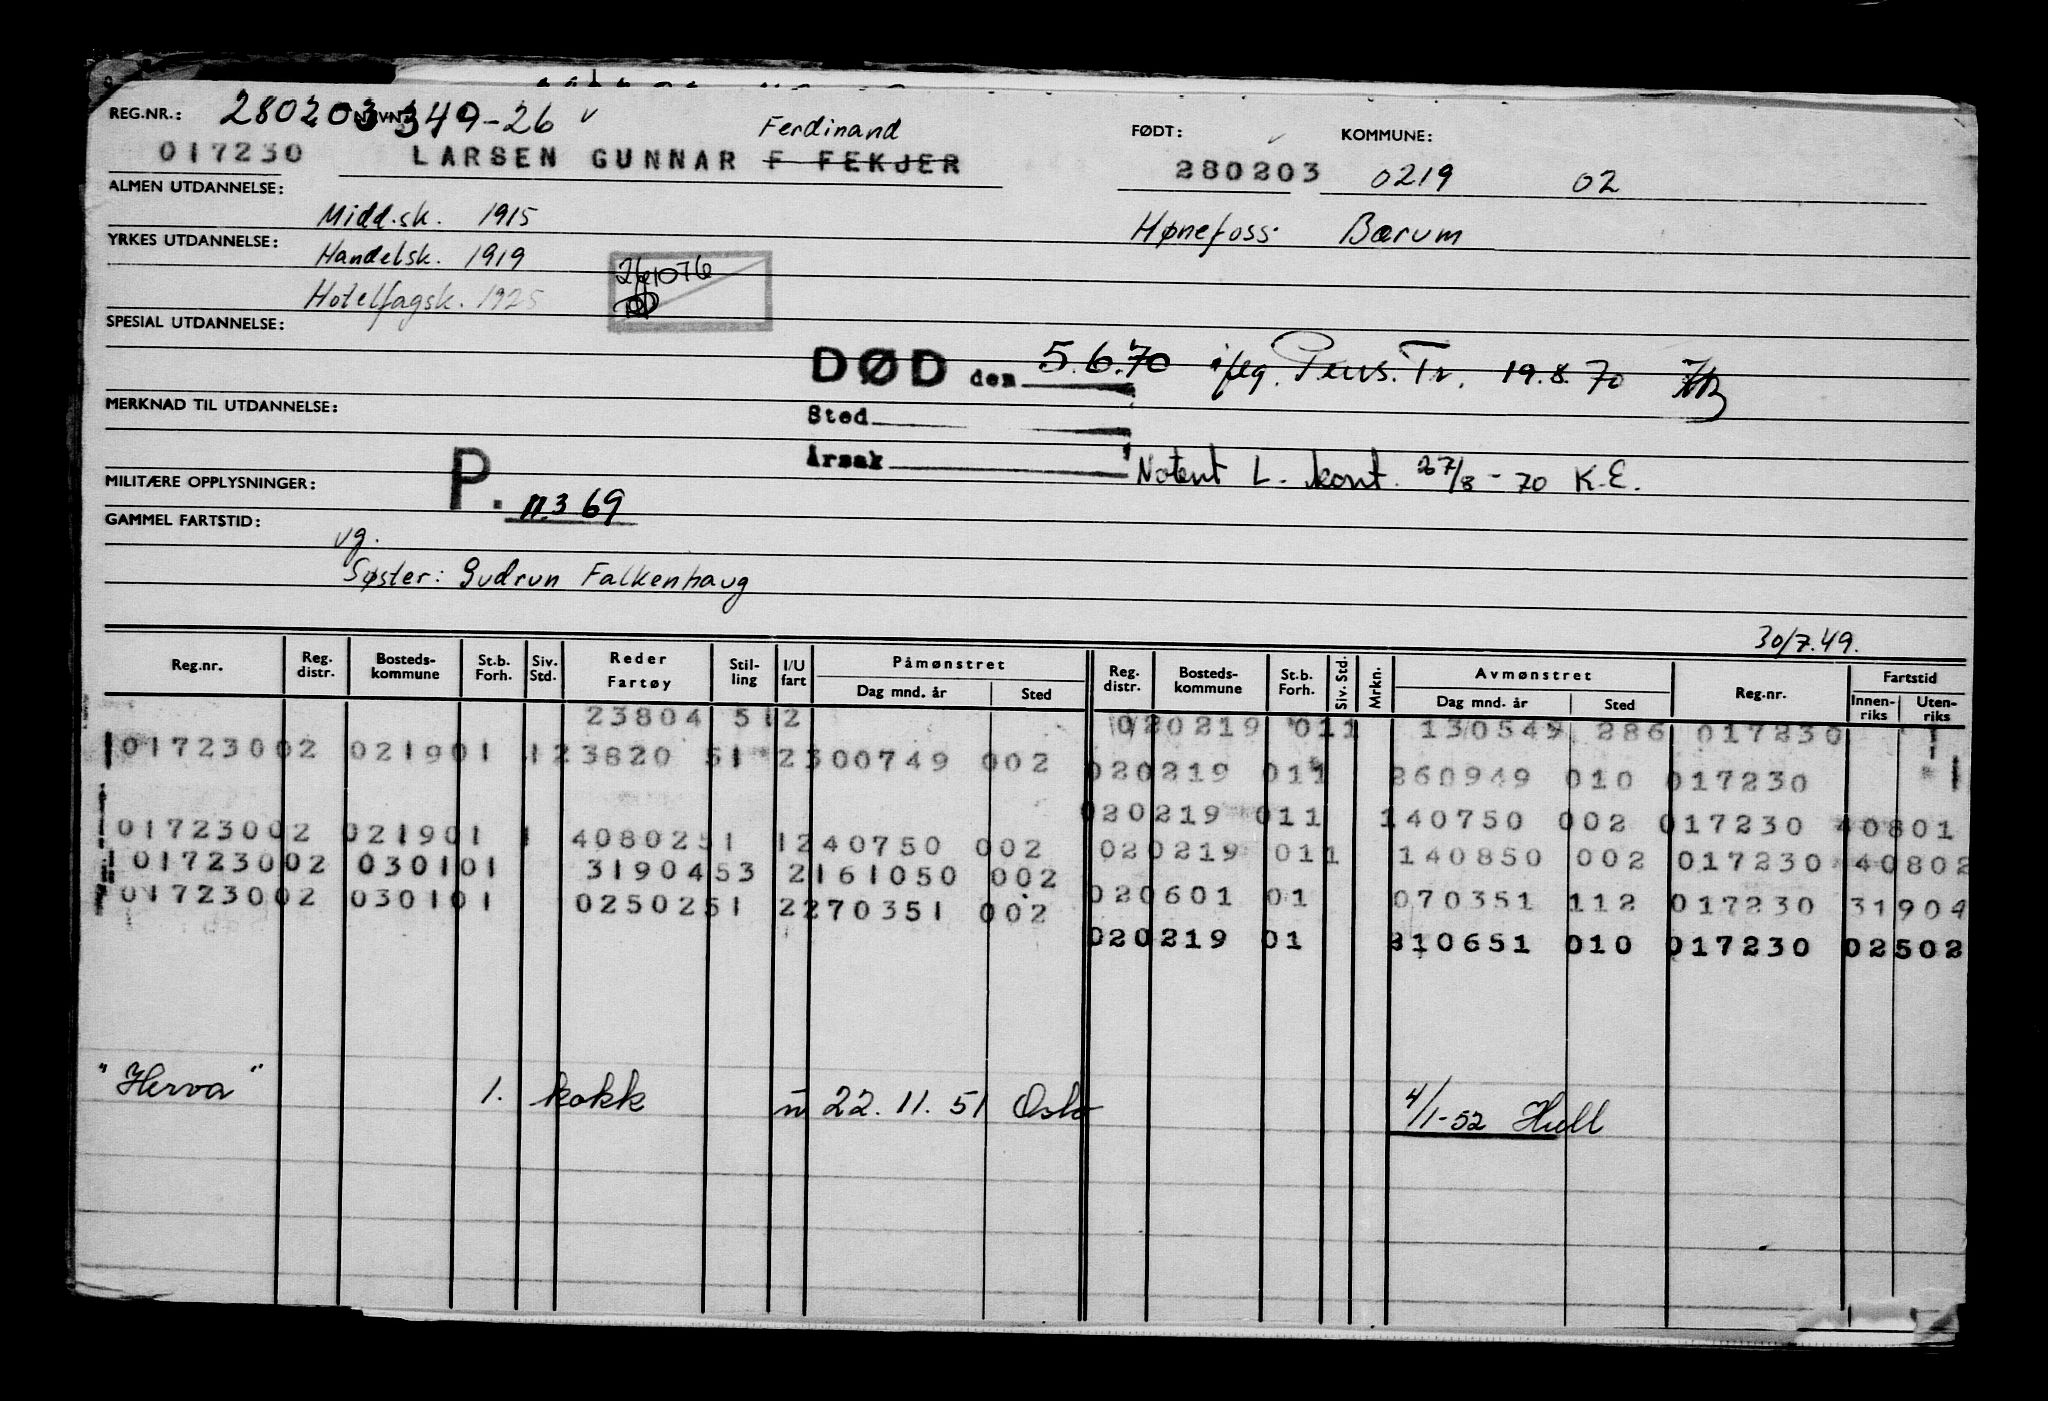 REG.NR.: 280203 349-26 v
NAVN: Ferdinand
FØDT: KOMMUNE:
017230 LARSEN GUNNAR F FEKJER 280203 0219 02
ALMEN UTDANNELSE:
Midd.sk. 1915 Hønefoss. Bærum
YRKES UTDANNELSE:
Handelsk. 1919
Hotelfagsk. 1925
SPESIAL UTDANNELSE:
DØD den 5.6.70 iflg. Pens. Tr. 19.8.70
MERKNAD TIL UTDANNELSE:
Sted
Årsak
Notent L. kont. 27/8-70 K.E.
MILITÆRE OPPLYSNINGER:
P. 11.3 69
GAMMEL FARTSTID:
vg.
Søster: Gudrun Falkenhaug
30/7.49.
Reg.nr. Reg. distr. Bosteds-kommune St.b. Forh. Siv. Std. Reder Fartøy Stil-ling I/U fart Påmønstret Dag mnd. år Sted Reg. distr. Bosteds-kommune St.b. Forh. Siv. Std. Mrkn. Avmønstret Dag mnd. år Sted Reg.nr. Fartstid Innen-riks Uten-riks
23804 512 020219 011 130549 286 017230
01723002 021901 123820 51 2300749 002 020219 011 260949 010 017230
020219 011 140750 002 017230 40801
01723002 021901 1 4080251 1240750 002 020219 011 140850 002 017230 40802
01723002 030101 3190453 2161050 002 020601 01 070351 112 017230 31904
01723002 030101 0250251 2270351 002 020219 01 310651 010 017230 02502
"Herva" 1. kokk u 22.11.51 Oslo 4/1-52 Hull